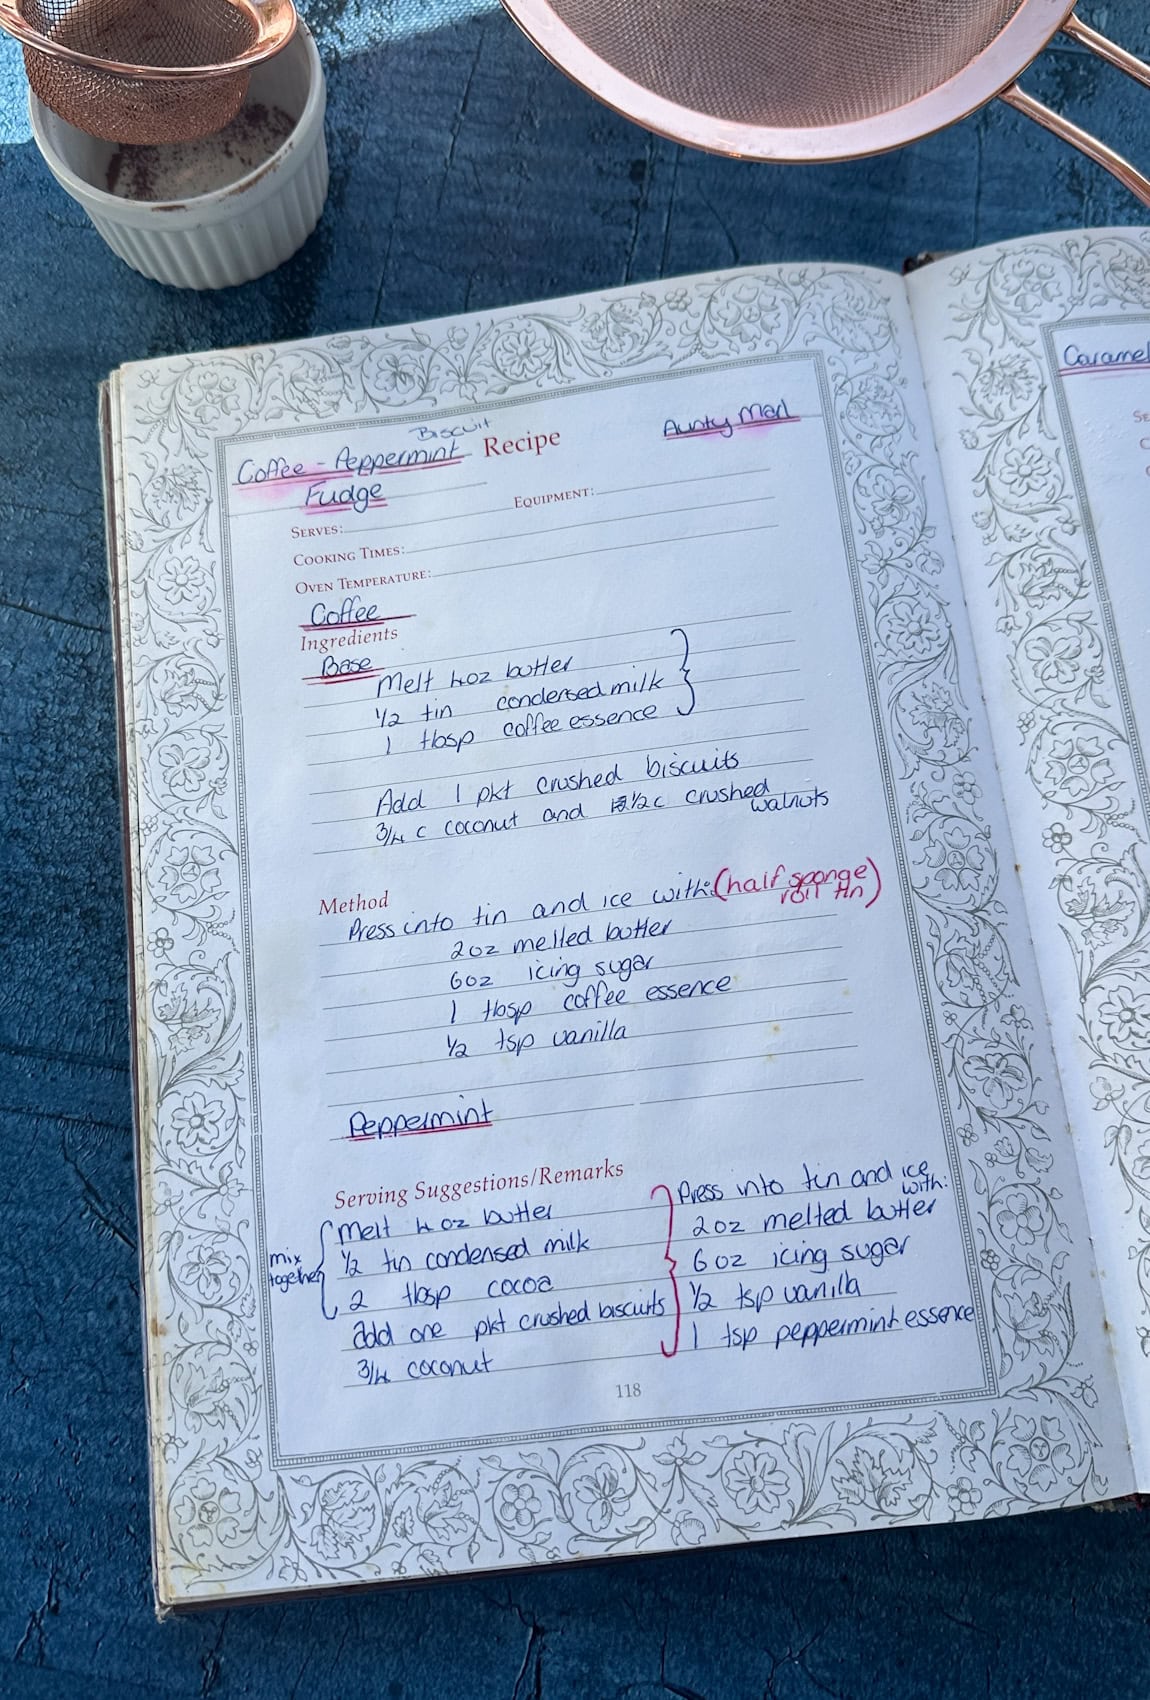 Biscuit
Coffee - Peppermint Recipe Aunty Marl
Fudge
SERVES: EQUIPMENT:
COOKING TIMES:
OVEN TEMPERATURE:
Coffee
Ingredients
Base
Melt 4oz butter
1/2 tin condensed milk
1 tbsp coffee essence
Add 1 pkt crushed biscuits
3/4 c coconut and 1/2 c crushed
walnuts
Method
Press into tin and ice with: (half sponge
roll tin)
2oz melled butter
6oz icing sugar
1 tbsp coffee essence
1/2 tsp vanilla
Peppermint
Serving Suggestions/Remarks
mix
together
Melt 4 oz butter
1/2 tin condensed milk
2 tbsp cocoa
add one pkt crushed biscuits
3/4 coconut
Press into tin and ice
with:
2oz melted butter
6oz icing sugar
1/2 tsp vanilla
1 tsp peppermint essence
118
Caramel